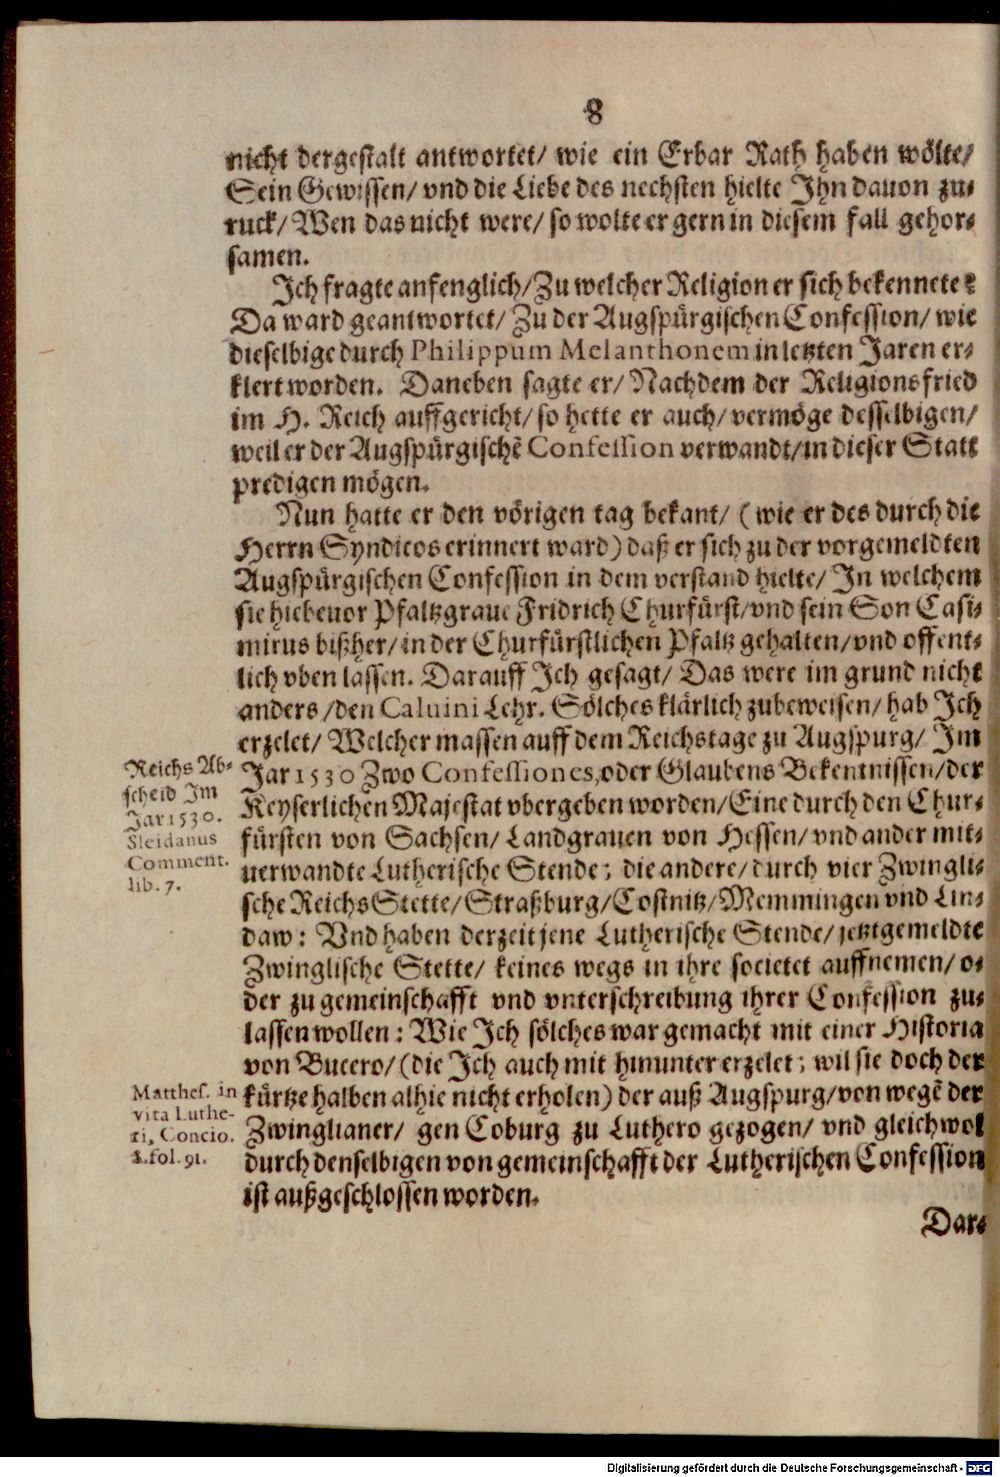 8
nicht dergestalt antwortet/ wie ein Erbar Rath haben wölte/
Sein Gewissen/ vnd die Liebe des nechsten hielte Ihn dauon zu⸗
ruck/ Wen das nicht were/ so wolte er gern in diesem fall gehor⸗
samen.
Ich fragte anfenglich/ Zu welcher Religion er sich bekennete?
Da ward geantwortet/ Zu der Augspürgischen Confession/ wie
dieselbige durch Philippum Melanthonem in letzten Jaren er⸗
klert worden. Daneben sagte er/ Nachdem der Religionsfried
im H. Reich auffgericht/ so hette er auch/ vermöge desselbigen/
weil er der Augspürgischẽ Confession verwandt/ in dieser Statt
predigen mögen.
Nun hatte er den vörigen tag bekant/ (wie er des durch die
Herrn Syndicos erinnert ward) daß er sich zu der vorgemeldten
Augspürgischen Confession in dem verstand hielte/ In welchem
sie hiebeuor Pfaltzgraue Fridrich Churfürst/ vnd sein Son Casi⸗
mirus bißher/ in der Churfürstlichen Pfaltz gehalten/ vnd offent⸗
lich vben lassen. Darauff Ich gesagt/ Das were im grund nicht
anders/ den Caluini Lehr. Sölches klärlich zubeweisen/ hab Ich
erzelet/ Welcher massen auff dem Reichstage zu Augspurg/ Im
Jar 1530 Zwo Confessiones, oder Glaubens Bekentnissen/ der
Keyserlichen Majestat vbergeben worden/ Eine durch den Chur⸗
fürsten von Sachsen/ Landgrauen von Hessen/ vnd ander mit⸗
uerwandte Lutherische Stende; die andere/ durch vier Zwingli⸗
sche ReichsStette/ Straßburg/ Costnitz/ Memmingen vnd Lin⸗
daw: Vnd haben derzeit jene Lutherische Stende/ jetztgemeldte
Zwinglische Stette/ keines wegs in ihre societet auffnemen/ o⸗
der zu gemeinschafft vnd vnterschreibung ihrer Confession zu⸗
lassen wollen: Wie Ich sölches war gemacht mit einer Historia
von Bucero/ (die Ich auch mit hinunter erzelet; wil sie doch der
kürtze halben alhie nicht erholen) der auß Augspurg/ von wegẽ der
Zwinglianer/ gen Coburg zu Luthero gezogen/ vnd gleichwol
durch denselbigen von gemeinschafft der Lutherischen Confession
ist außgeschlossen worden.
Dar⸗
Reichs Ab⸗
scheid Im
Jar 1530.
Sleidanus
Comment.
lib. 7.
Matthes. in
vita Luthe-
ri, Concio.
8. fol. 91.
Digitalisierung gefördert durch die Deutsche Forschungsgemeinschaft - DFG